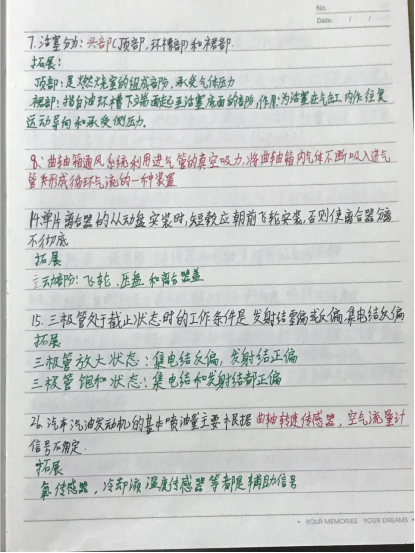 No.
Date. / /
7.活塞分为:头部(顶部,环槽部)和裙部.
拓展:
顶部:是燃烧室的组成部阶,承受气体压力
裙部:指自油环槽下端面起至活塞底面的部阶,作用:为活塞在气缸内作往复
运动导向和承受侧压力.
8:曲轴箱通风系统利用进气管的真空吸力,将曲轴箱内气体不断吸入进气
管来形成循环气流的一种装置
14.单片离合器的从动盘安装时,短毂应朝前飞轮安装,否则使离合器分离
不彻底
拓展
主动部阶:飞轮、压盘和离合器盖
15.三极管处于截止状态时的工作条件是发射结零偏或反偏,集电结反偏
拓展
三极管放大状态:集电结反偏,发射结正偏
三极管饱和状态:集电结和发射结都正偏
26.汽车汽油发动机的基本喷油量主要根据曲轴转速传感器,空气流量计
信号而确定.
拓展
氧传感器,冷却液温度传感器等都是辅助信号
• YOUR MEMORIES YOUR DREAMS •